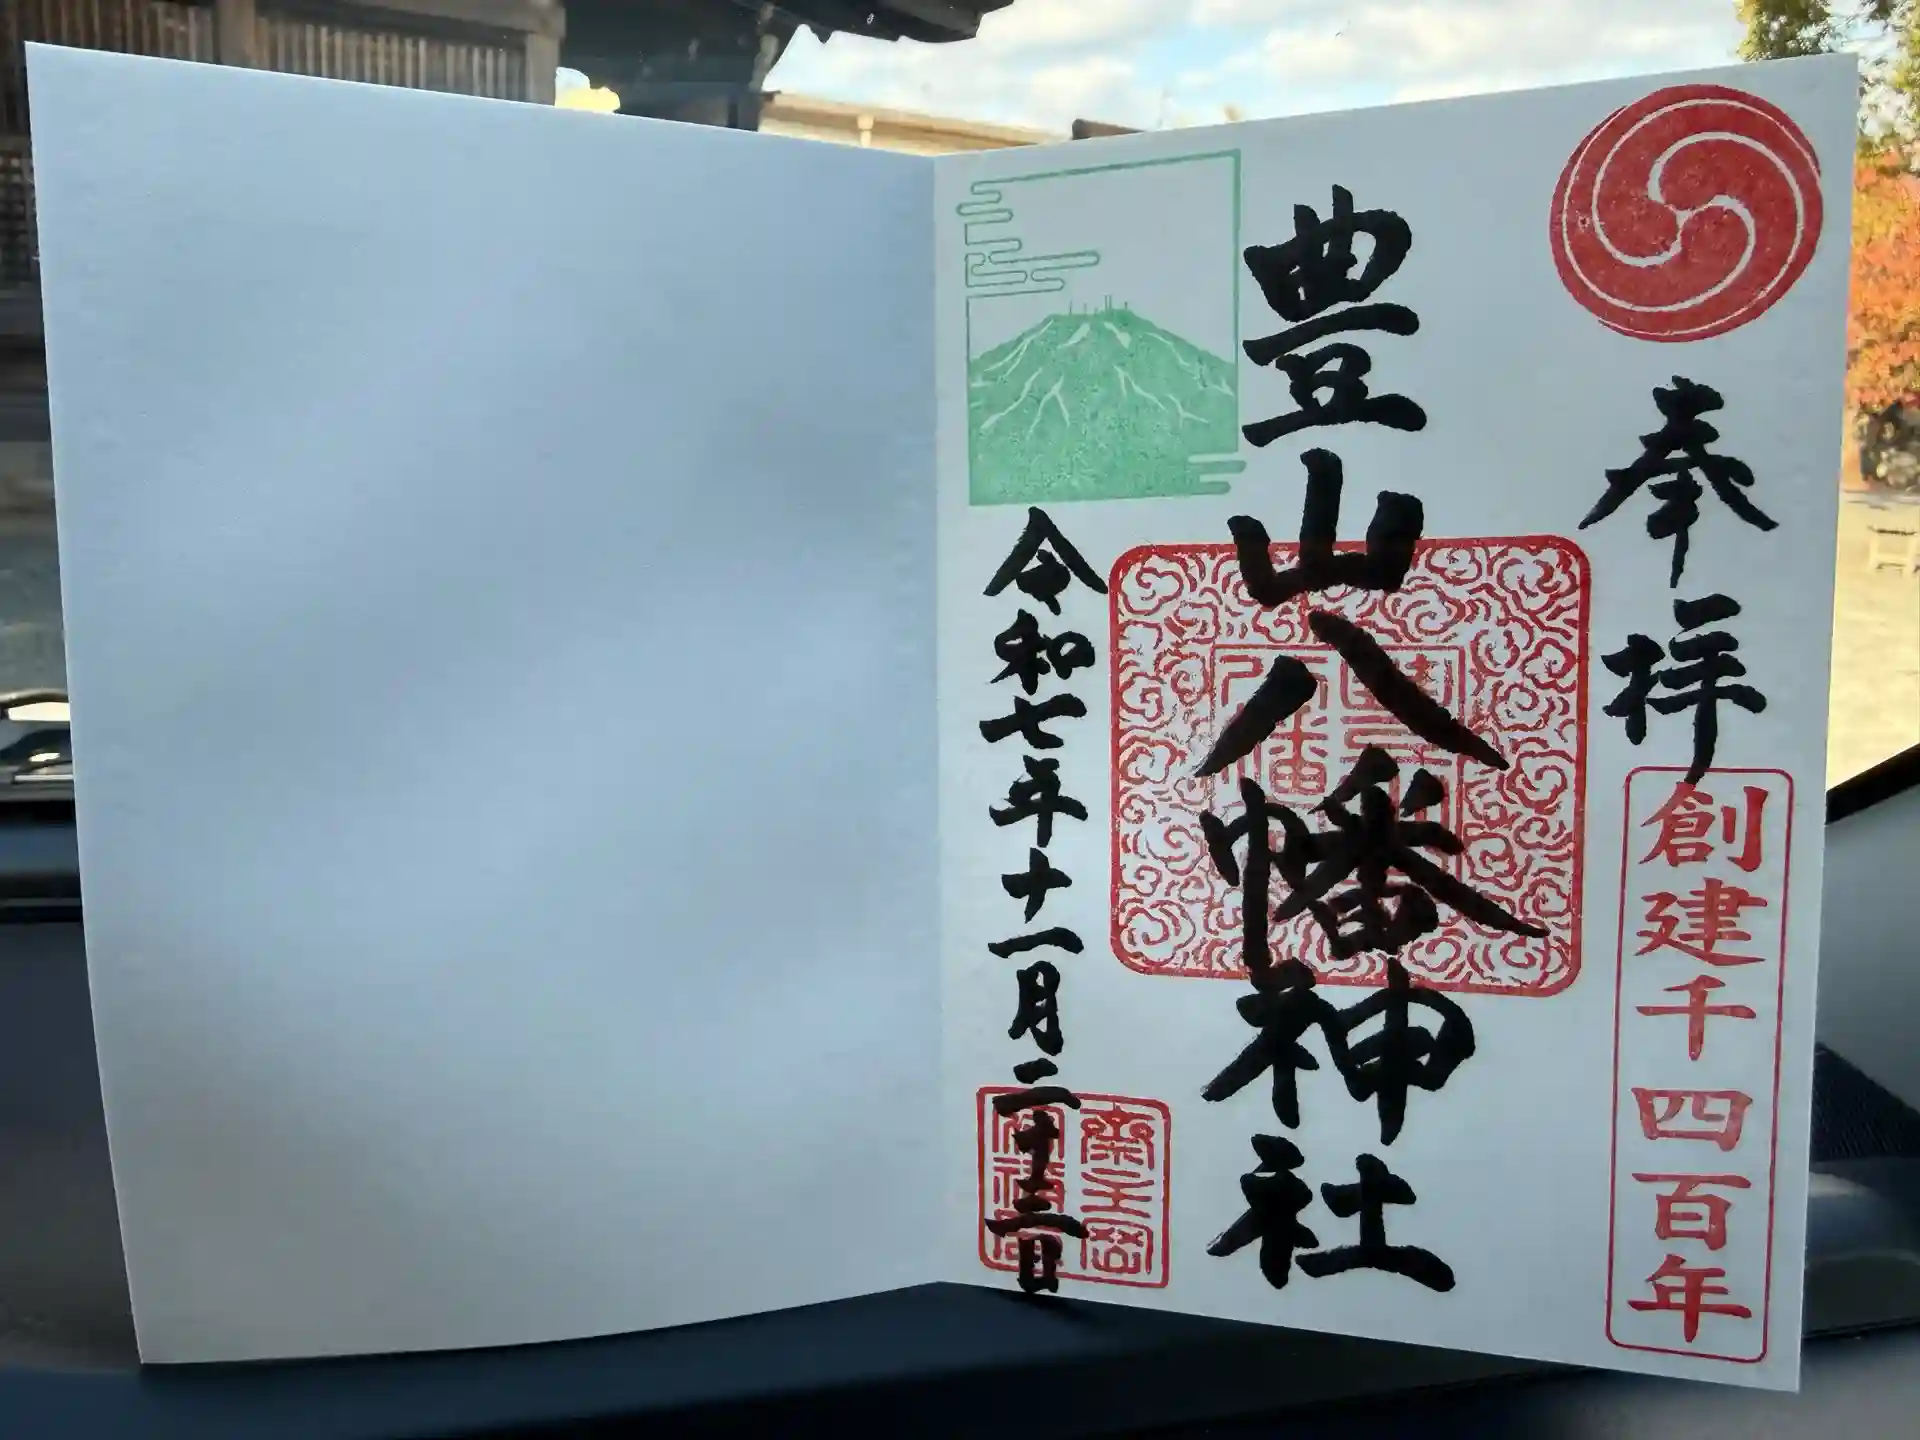 奉拝
創建千四百年
豊山八幡神社
令和七年十一月二十三日